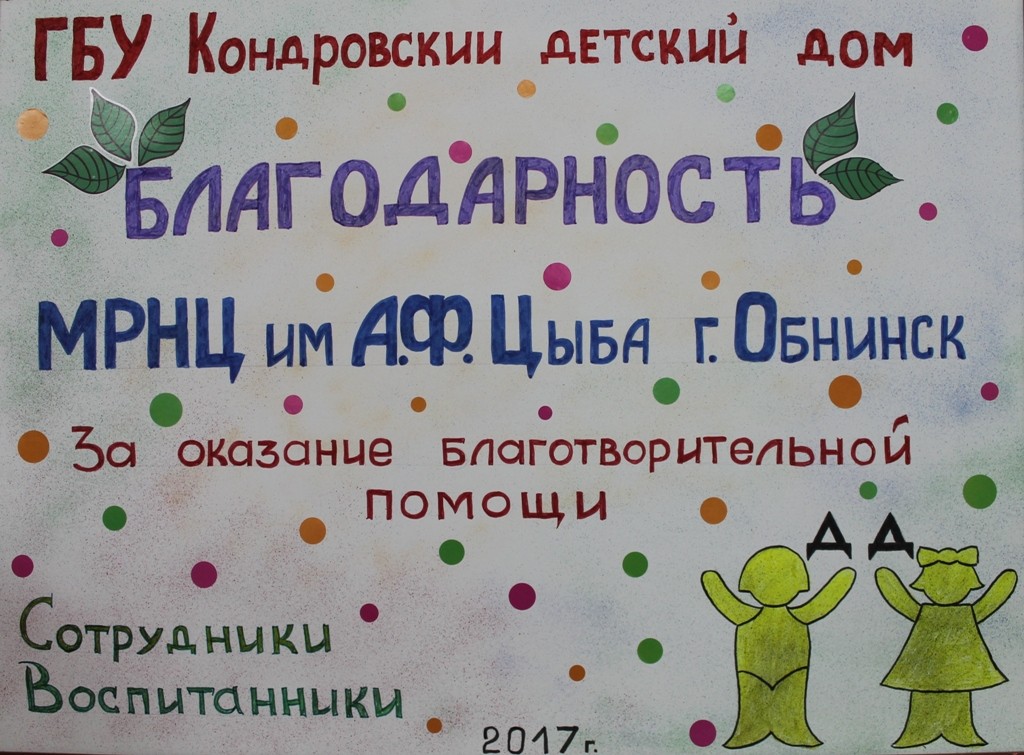 ГБУ Кондровскии детский дом
Благодарность
МРНЦ им А.Ф. Цыба г. Обнинск
За оказание благотворительной
помощи
Д Д
Сотрудники
Воспитанники
2017 г.